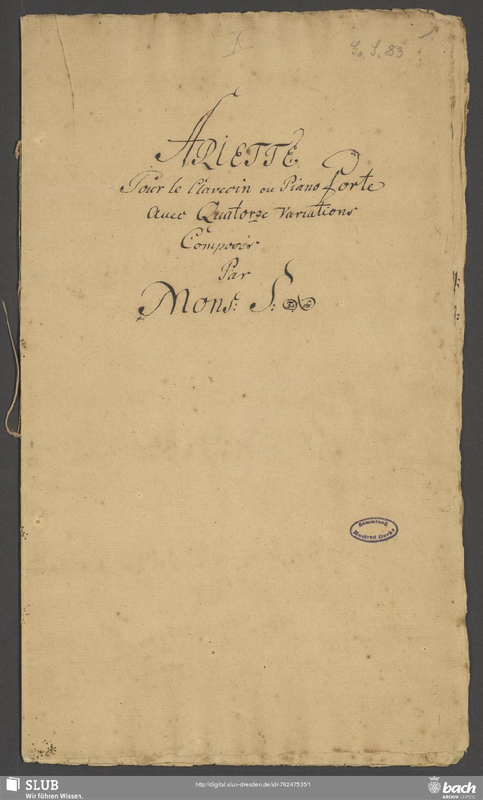 1
Go. S. 83
ARIETTE
Pour le Clavecin ou Piano Forte
avec Quatorze Variations
Composés
Par
Mons: S:
Sammlung
Manfred Gorke
SLUB
Wir führen Wissen.
http://digital.slub-dresden.de/id=78247535/1
bach
ARCHIV LEIPZIG